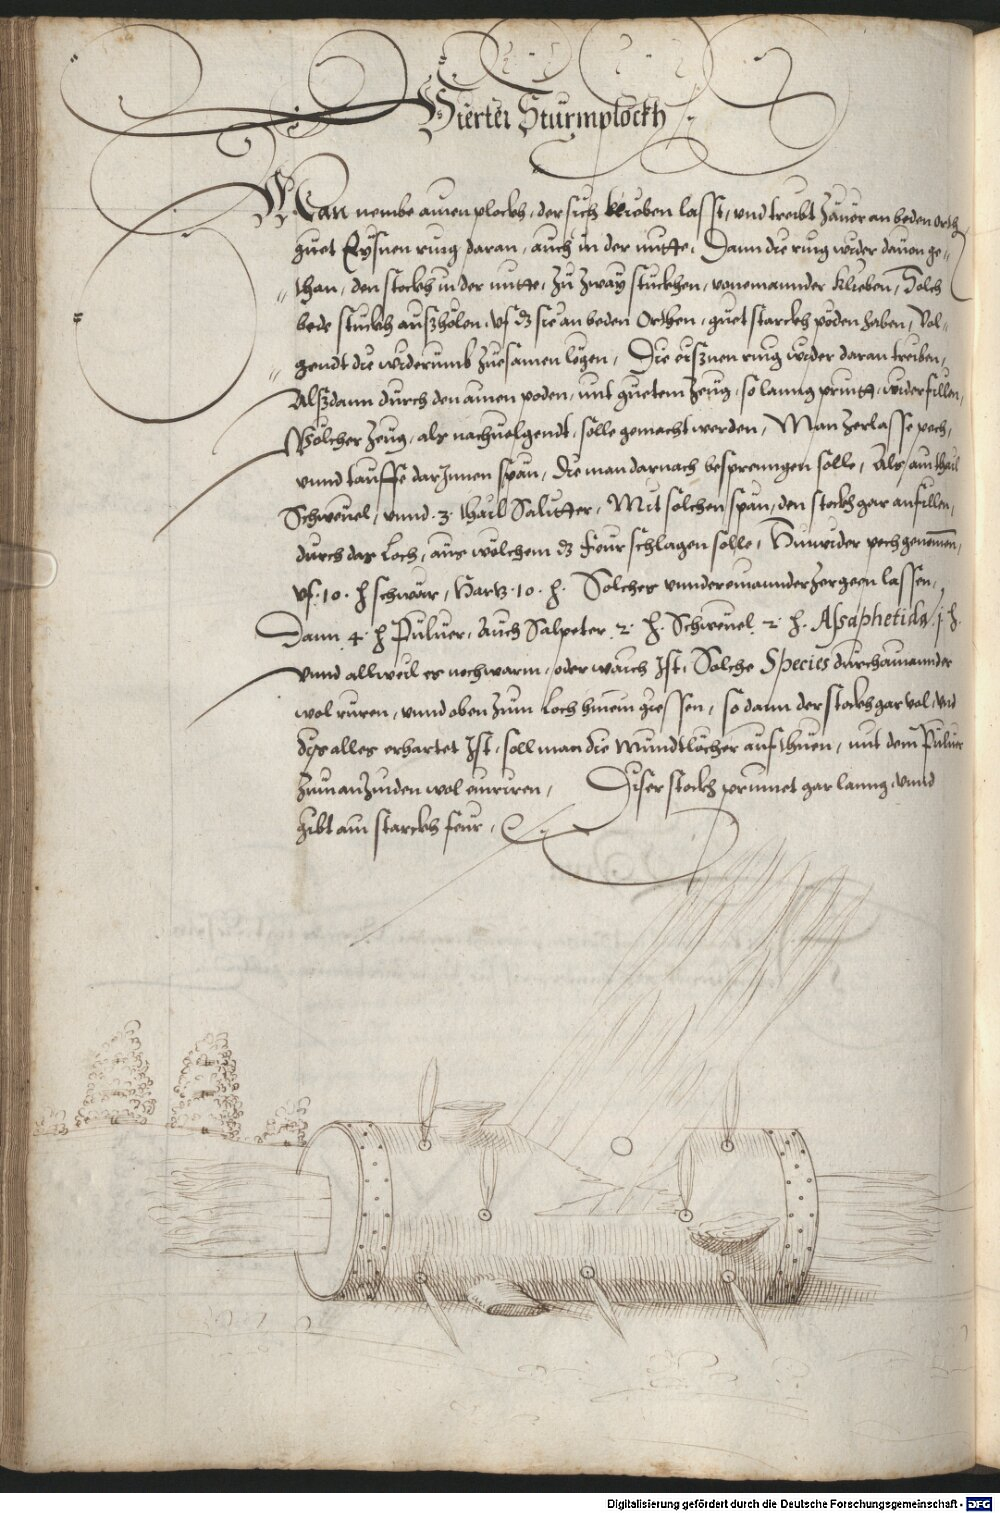 Vierter Sturmplockh
Man nembe ainen plockh, der sich klieben lasst, vnd treibt zuuor an beden orth
guet Eysnen ring daran, auch in der mitte, Dann die ring wider dauon ge-
than, den stockh in der mitte, zu zway stuckhen, voneinannder klieben, Solch
bede stuckh auszhölen, vf dz sie an beden Orthen, guet starckh pöden haben, Vol-
gendt die widerumb zuesamen legen, Die eisznen ring wider daran treiben,
Alszdann durch den ainen poden, mit guetem Zeug, so lanng printt, wider fillen,
Wölcher Zeug, als nachuolgendt, solle gemacht werden, Man zerlasse pech,
vnnd tauffe darjnnen span, die man darnach besprenngen solle, Als ain thail
Schweuel, vnnd .3. thail Salitter, Mit solchen span, den stockh gar anfillen,
durch das Loch, aus wölchem dz Feur schlagen solle, Hinwider pech genomen,
vf .10. ℔ schwär, Hartz .10. ℔. Solches vnndereinannder zergeen lassen,
Dann 4. ℔ Puluer, Auch Salpeter .2. ℔. Schweuel .2. ℔. Asaphetida .j. ℔.
vnnd allweil es noch warm, oder waich Jst, Solche Species durchainannder
wol ruren, vnnd oben zum Loch hinein giessen, so dann der stockh gar vol, vnd
dis alles erhartet Jst, soll man die Mundtlöcher aufthuen, mit dem Puluer
zum anzinden wol einriren, Diser stockh prinnet gar lanng, vnnd
gibt ain starckh feur,
Digitalisierung gefördert durch die Deutsche Forschungsgemeinschaft - DFG